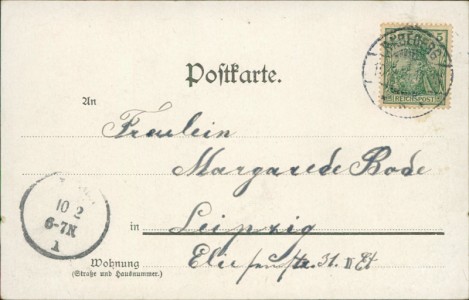 5
REICHSPOST
Postkarte.
An
Fraulein
Margarede Bode
10 2
6-7N
1
in Leipzig
Wohnung
(Straße und Hausnummer.)
31. II Et